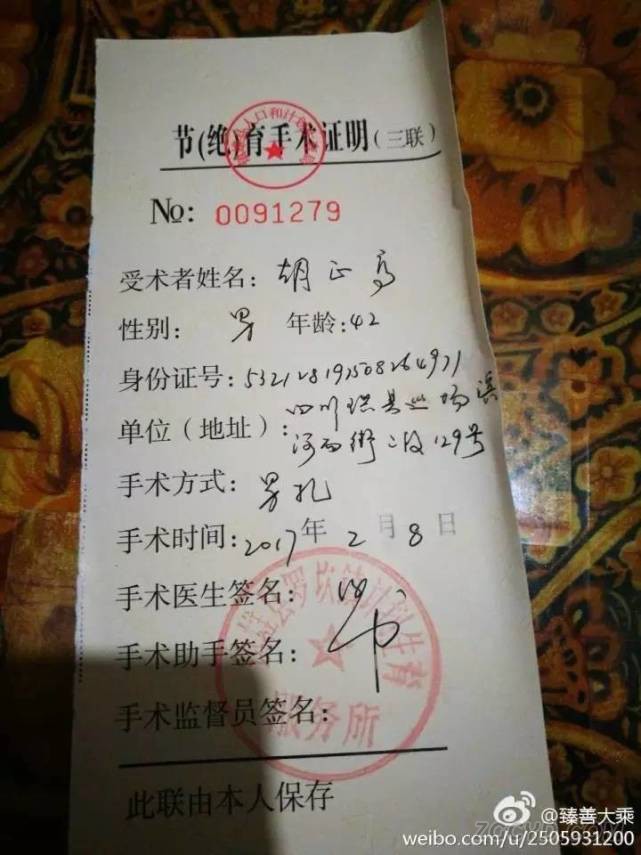 节(绝)育手术证明(三联)
No: 0091279
受术者姓名: 胡正高
性别: 男 年龄:42
身份证号:
单位(地址): 四川珙县巡场
河西街 129号
手术方式: 男扎
手术时间:2017年 2 月 8 日
手术医生签名:
手术助手签名:
手术监督员签名:
计划生育
服务所
此联由本人保存
@臻善大乘
weibo.com/u/2505931200